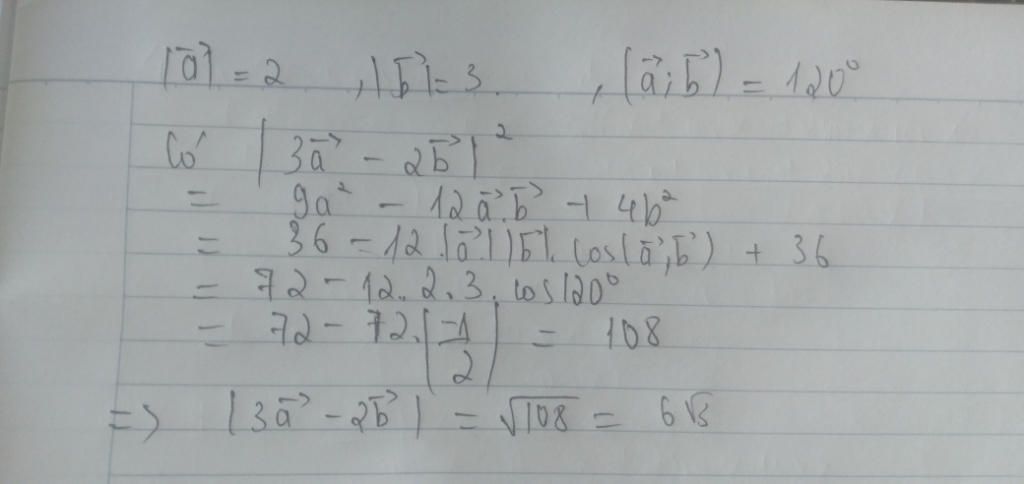 |a⃗| = 2 , |b⃗| = 3 . , (a⃗; b⃗) = 120°
Có |3a⃗ - 2b⃗|²
= 9a² - 12a⃗.b⃗ + 4b²
= 36 - 12.|a⃗|.|b⃗|. cos(a⃗; b⃗) + 36
= 72 - 12. 2. 3. cos120°
= 72 - 72.(-1/2) = 108
=> |3a⃗ - 2b⃗| = √108 = 6√3